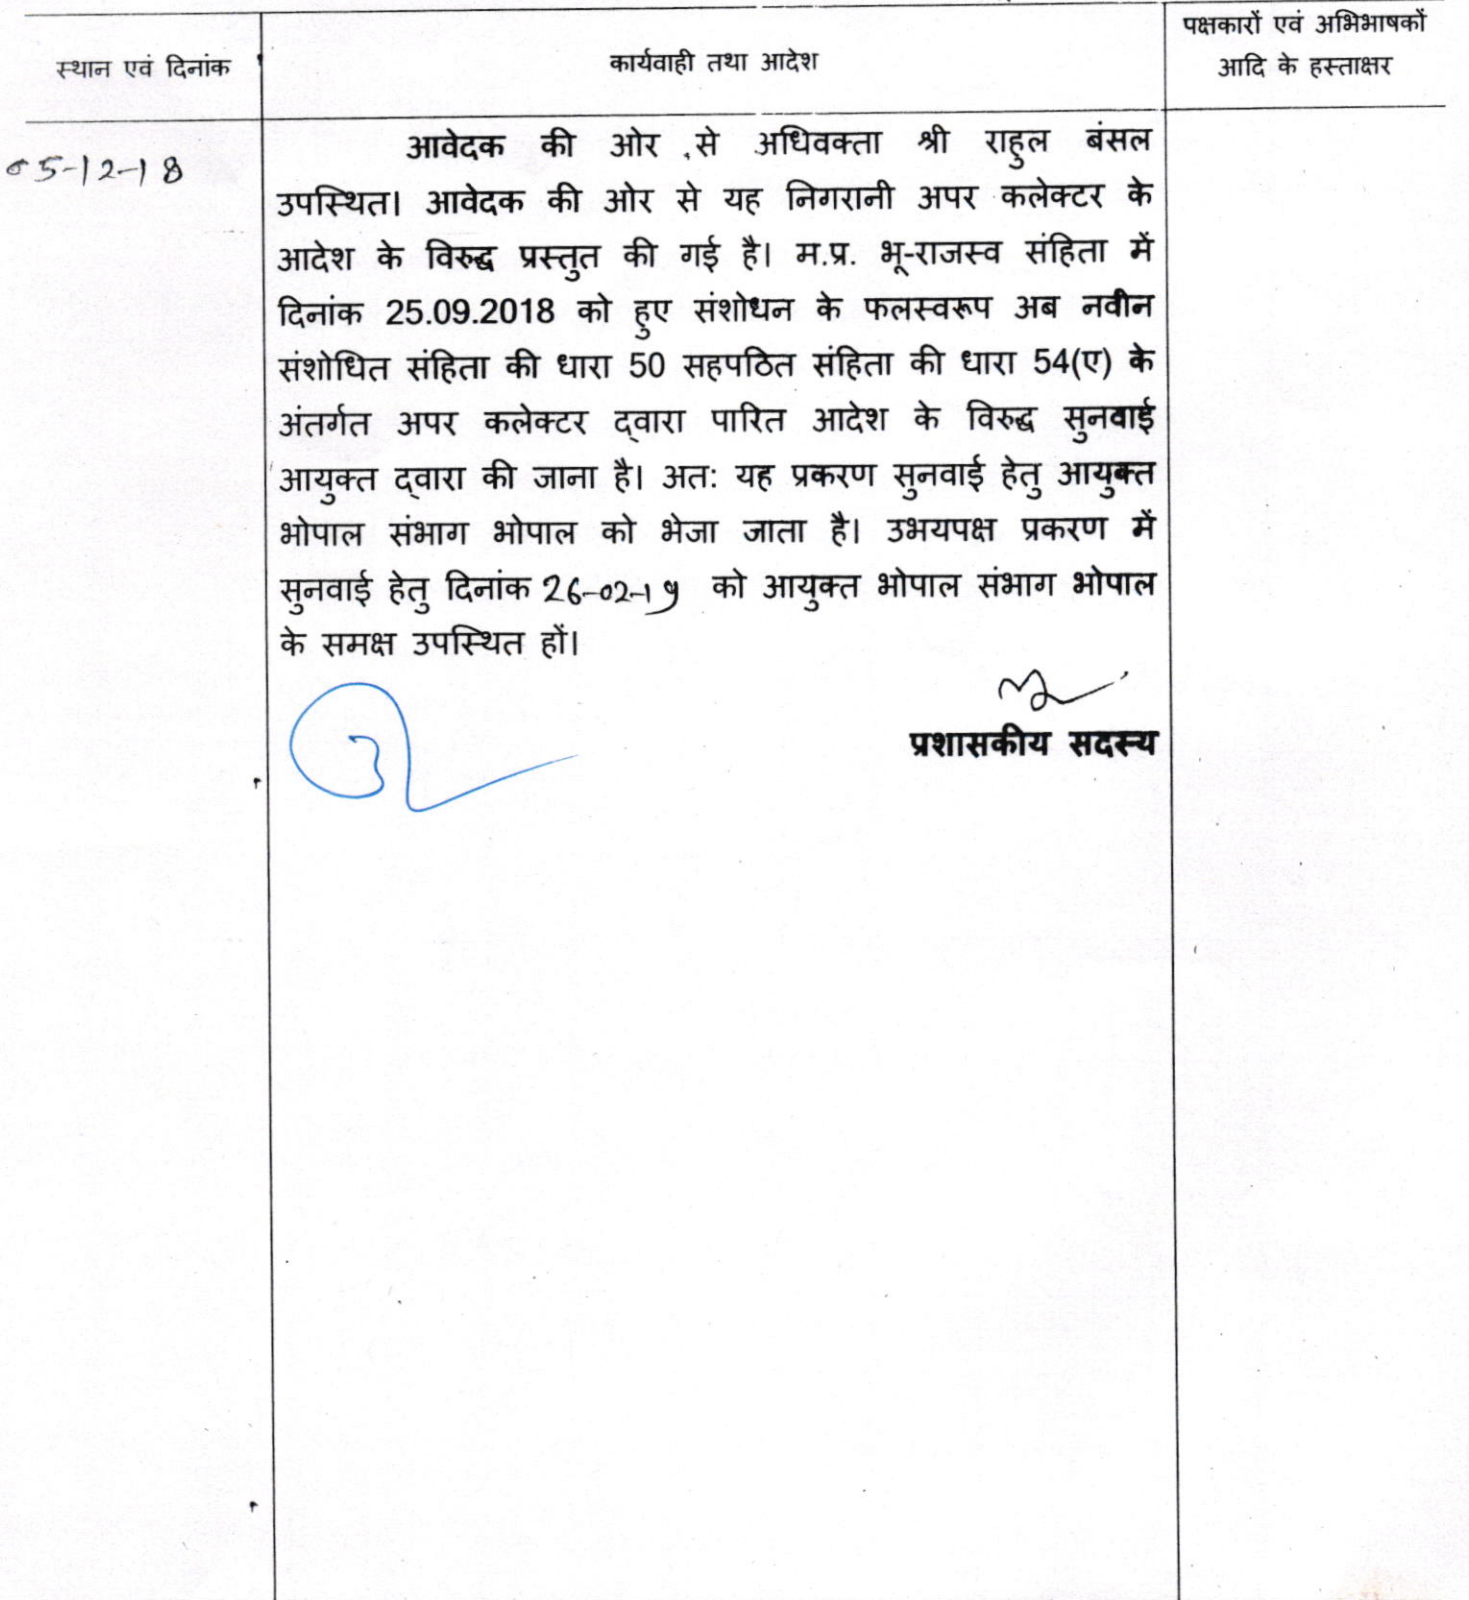 स्थान एवं दिनांक
कार्यवाही तथा आदेश
पक्षकारों एवं अभिभाषकों
आदि के हस्ताक्षर
05-12-18
आवेदक की ओर से अधिवक्ता श्री राहुल बंसल
उपस्थित। आवेदक की ओर से यह निगरानी अपर कलेक्टर के
आदेश के विरुद्ध प्रस्तुत की गई है। म.प्र. भू-राजस्व संहिता में
दिनांक 25.09.2018 को हुए संशोधन के फलस्वरूप अब नवीन
संशोधित संहिता की धारा 50 सहपठित संहिता की धारा 54(ए) के
अंतर्गत अपर कलेक्टर द्वारा पारित आदेश के विरुद्ध सुनवाई
आयुक्त द्वारा की जाना है। अतः यह प्रकरण सुनवाई हेतु आयुक्त
भोपाल संभाग भोपाल को भेजा जाता है। उभयपक्ष प्रकरण में
सुनवाई हेतु दिनांक 26-02-19 को आयुक्त भोपाल संभाग भोपाल
के समक्ष उपस्थित हों।
प्रशासकीय सदस्य